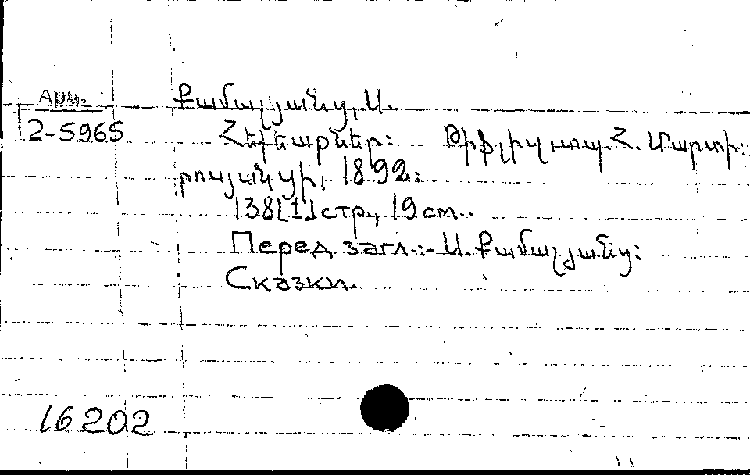 Арм.
2-5965
Քամալյանց, Ս.
Հեքեաթներ: Թիֆլիս, տպ. Հ. Մարտի-
րոսյանցի, 1892:
138[1] стр., 19 cm.
Перед загл.:- Ս. Քամալյանց:
Сказки.
16202